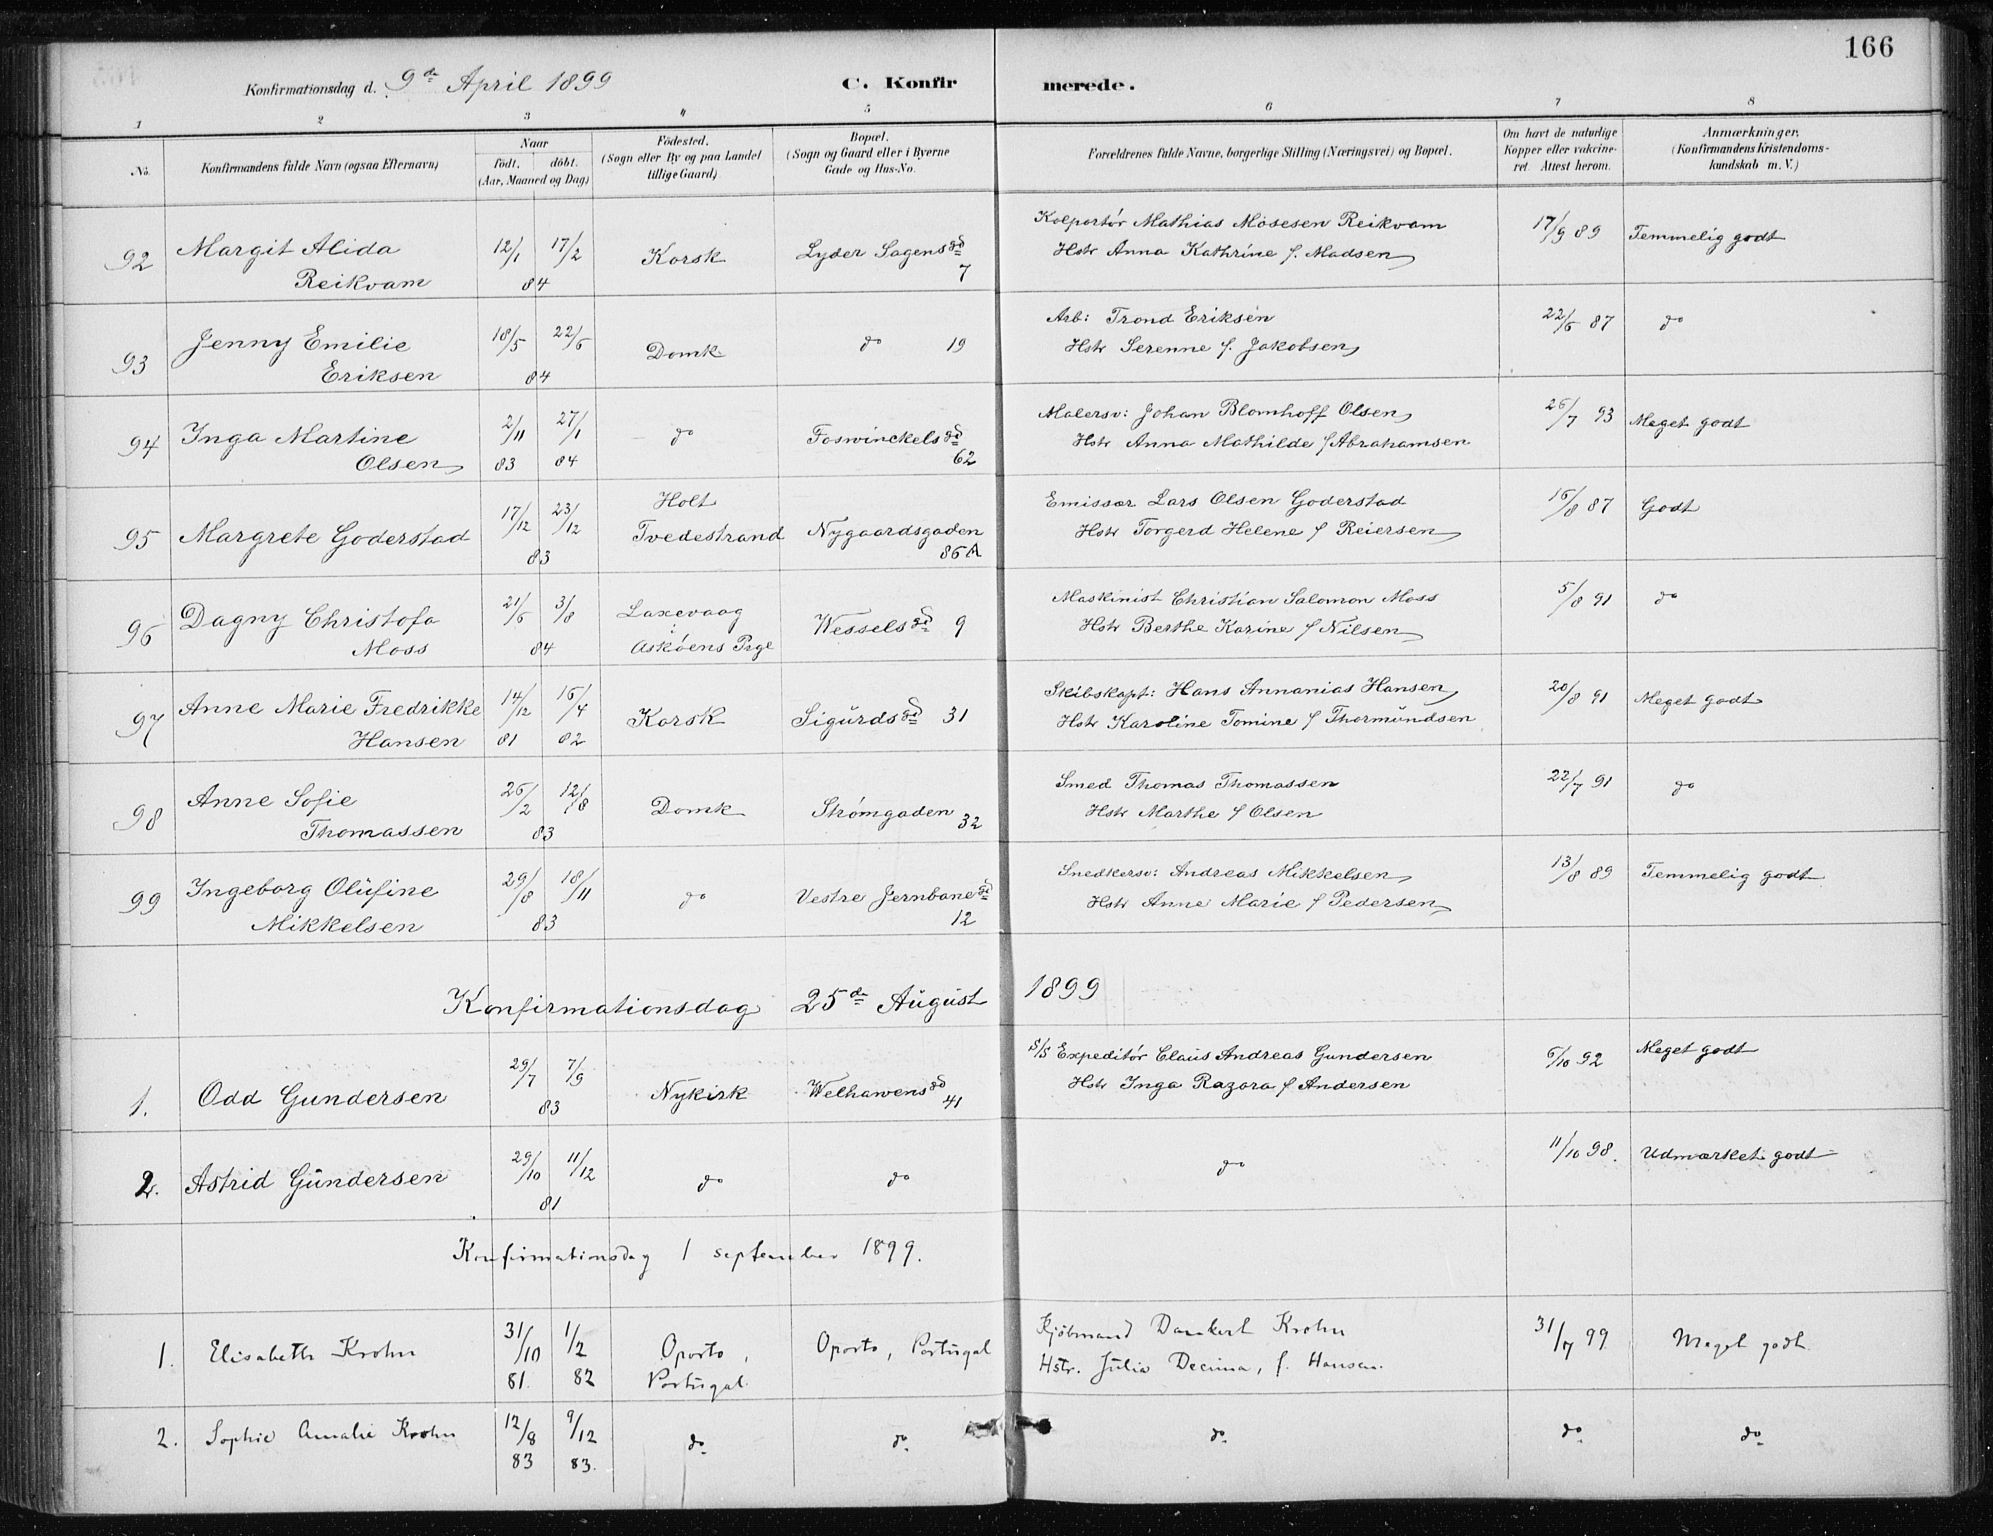 166
Konfirmationsdag d. 9de April 1899 C. Konfirmerede.
1 2 3 4 5 6 7 8
No. Konfirmandens fulde Navn (ogsaa Efternavn) Naar födt. döbt. (Aar, Maaned og Dag) Födested. (Sogn eller By og paa Landet tillige Gaard) Bopæl. (Sogn og Gaard eller i Byerne Gade og Hus-No. Forældrenes fulde Navne, borgerlige Stilling (Næringsvei) og Bopæl. Om havt de naturlige Kopper eller vakcineret. Attest herom. Anmærkninger. (Konfirmandens Kristendomskundskab m. V.)
92 Margit Alida 12/1 17/2 Korsk Lyder Sagensgd Kolportör Mathias Mosesen Reikvam 17/9 89 Temmelig godt
Reikvam 84 7 Hstr Anna Kathrine f. Madsen
93 Jenny Emilie 18/5 22/6 Domk do 19 Arb: Trond Eriksen 22/6 87 do
Eriksen 84 Hstr Serenne f. Jakobsen
94 Inga Martine 2/11 27/1 do Foswinckelsgd Malersv: Johan Blomhoff Olsen 26/7 93 Meget godt
Olsen 83 84 62 Hstr Anna Mathilde f Abrahamsen
95 Margrete Goderstad 17/12 23/12 Holt Nygaardsgaden Emissær Lars Olsen Goderstad 16/8 87 Godt
83 Tvedestrand 86 A Hstr Torgerd Helene f Reiersen
96 Dagny Christofa 21/6 3/8 Laxevaag Wesselsgd 9 Maskinist Christian Salomon Moss 5/8 91 do
Moss 84 Askøens Prgc Hstr Berthe Karine f Nilsen
97 Anne Marie Fredrikke 14/12 16/4 Korsk Sigurdsgd 31 Skibskapt: Hans Annanias Hansen 20/8 91 Meget godt
Hansen 81 82 Hstr Karoline Tomine f Thormundsen
98 Anne Sofie 26/2 12/8 Domk Strømgaden 32 Smed Thomas Thomassen 22/7 91 do
Thomassen 83 Hstr Marthe f Olsen
99 Ingeborg Olufine 29/8 18/11 do Vestre Jernbanegd Snedkersv: Andreas Mikkelsen 13/8 89 Temmelig godt
Mikkelsen 83 12 Hstr Anne Marie f Pedersen
Konfirmationsdag 25de August 1899
1. Odd Gundersen 29/7 7/9 Nykirk Welhavensgd S/S Expeditör Claus Andreas Gundersen 6/10 92 Meget godt
83 41 Hstr Inga Razora f Andersen
2. Astrid Gundersen 29/10 11/12 do do do 11/10 98. Udmærket godt
81
Konfirmationsdag 1 september 1899.
1. Elisabeth Krohn 31/10 1/2 Oporto, Oporto, Portugal Kjöbmand Danckert Krohn 31/7 99 Meget godt
81. 82 Portugal. Hstr. Julia Decima, f. Hansen.
2. Sophie Amalie Krohn 12/8 9/12 do do do do do
83 83.